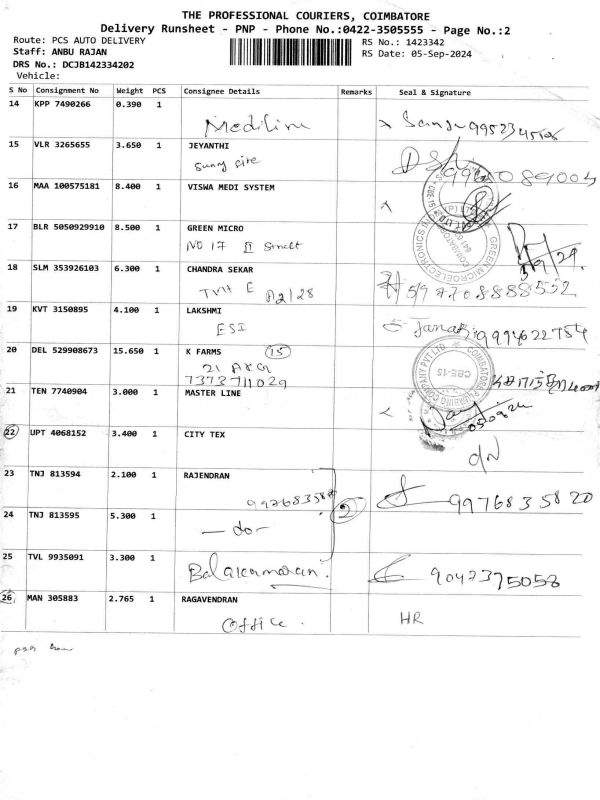 THE PROFESSIONAL COURIERS, COIMBATORE
Delivery Runsheet - PNP - Phone No.:0422-3505555 - Page No.:2
Route: PCS AUTO DELIVERY
RS No.: 1423342
Staff: ANBU RAJAN
RS Date: 05-Sep-2024
DRS No.: DCJB142334202
Vehicle:
S No Consignment No Weight PCS Consignee Details Remarks Seal & Signature
14 KPP 7490266 0.390 1
Mediline
15 VLR 3265655 3.650 1 JEYANTHI
Sunny side
16 MAA 100575181 8.400 1 VISWA MEDI SYSTEM
17 BLR 5050929910 8.500 1 GREEN MICRO
No 17 II Street
18 SLM 353926103 6.300 1 CHANDRA SEKAR
TVH E A2/28
19 KVT 3150895 4.100 1 LAKSHMI
ESI
9994622754
20 DEL 529908673 15.650 1 K FARMS 15
7373711029
21 TEN 7740904 3.000 1 MASTER LINE
22 UPT 4068152 3.400 1 CITY TEX
23 TNJ 813594 2.100 1 RAJENDRAN
9976835820 2 9976835820
24 TNJ 813595 5.300 1
-do-
25 TVL 9935091 3.300 1
Balakumaran. 9042375058
26 MAN 305883 2.765 1 RAGAVENDRAN
Office. HR